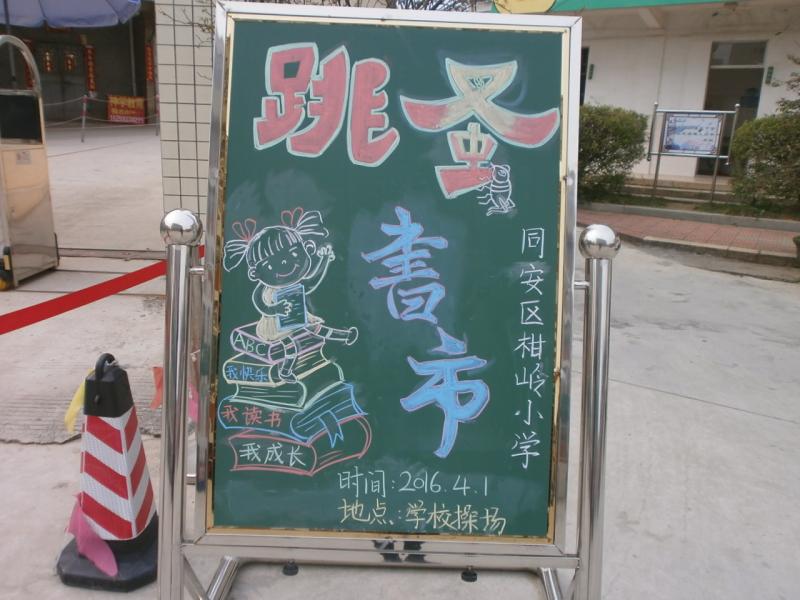 跳蚤
书市
同安区柑岭小学
ABC
我快乐
我读书
我成长
时间:2016.4.1
地点:学校操场